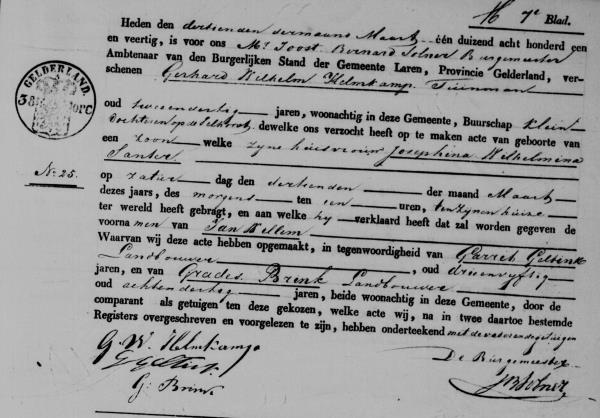 H 7e Blad.
Heden den dertienden der maand Maart één duizend acht honderd een
en veertig, is voor ons Mr Joost Bernard Solner Burgemeester
Ambtenaar van den Burgerlijken Stand der Gemeente Laren, Provincie Gelderland, ver-
schenen Gerhard Wilhelm Helmkamp, Tuinman
GELDERLAND.
oud twee en dertig jaren, woonachtig in deze Gemeente, Buurschap Klein
Dochteren dewelke ons verzocht heeft op te maken acte van geboorte van
een zoon welke zyne huisvrouw Josephina Wilhelmina
Santer
No. 25.
op zatur dag den dertienden der maand Maart
dezes jaars, des morgens ten een uren, ten zynen huize
ter wereld heeft gebragt, en aan welke hy verklaard heeft dat zal worden gegeven de
voornamen van Jan Willem
Waarvan wij deze acte hebben opgemaakt, in tegenwoordigheid van Garrit Geltink
Landbouwer, oud drie en vyftig
jaren, en van Grades Brink Landbouwer
oud acht en dertig jaren, beide woonachtig in deze Gemeente, door de
comparant als getuigen ten deze gekozen, welke acte wij, na in twee daartoe bestemde
Registers overgeschreven en voorgelezen te zijn, hebben onderteekend met de vader en de getuigen
G. W. Helmkamp
De Burgemeester
G Geltink
G: Brink
JB Solner